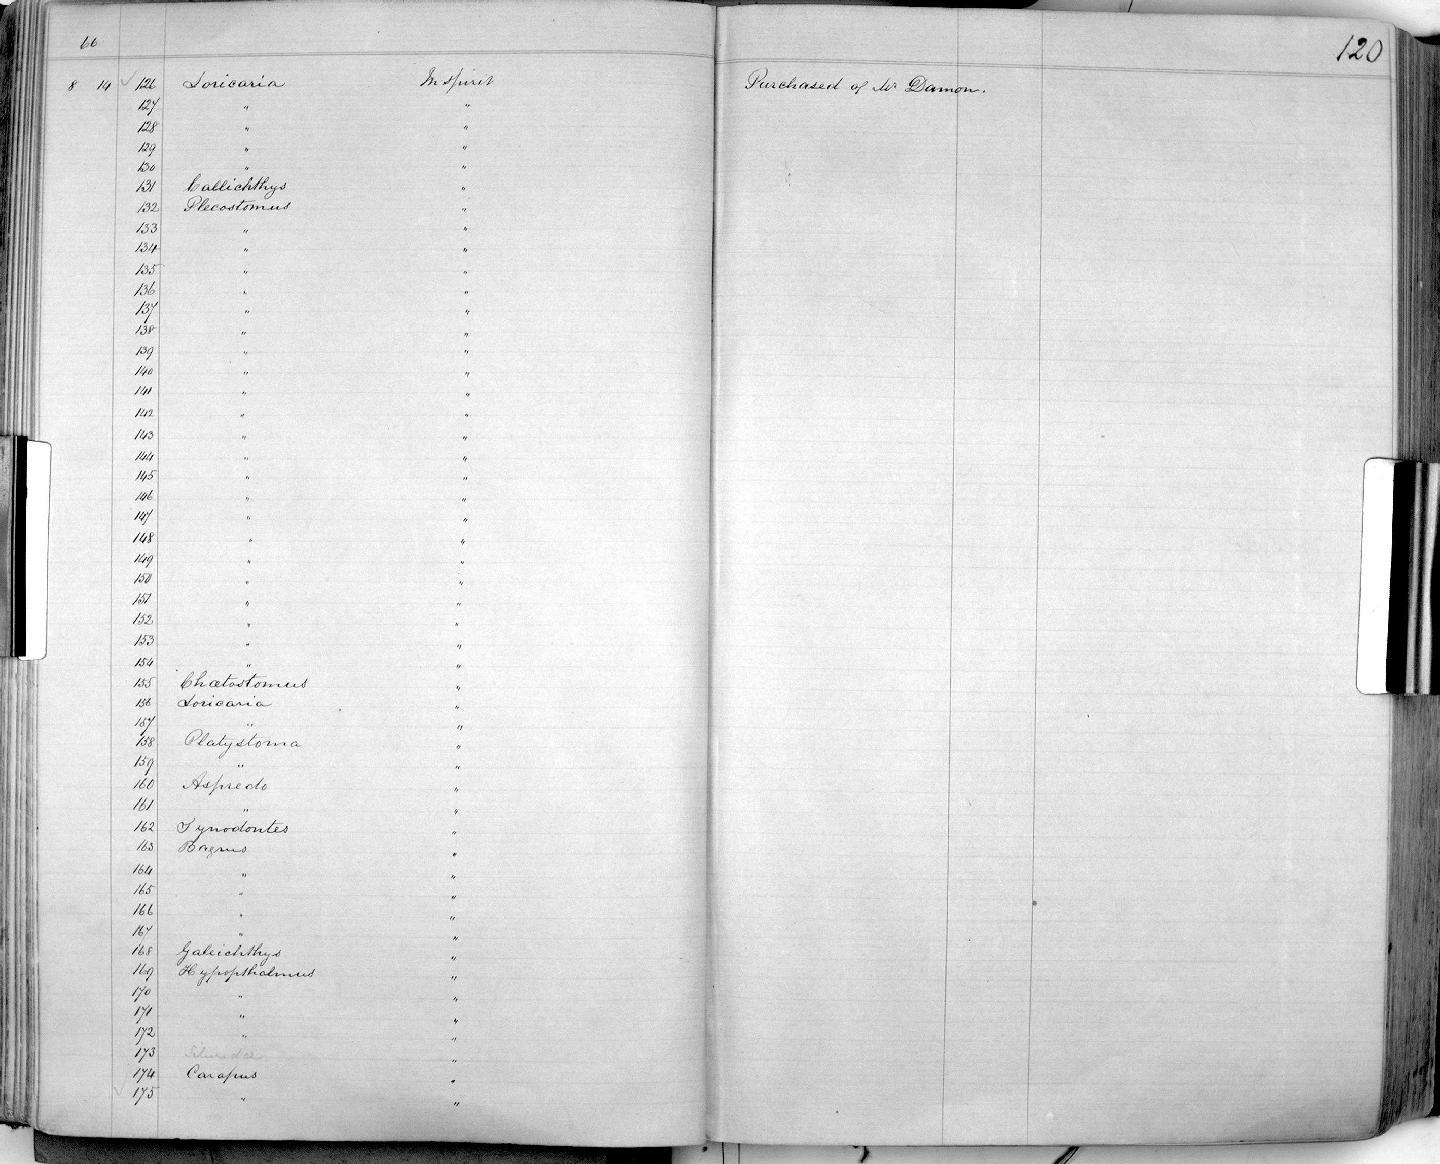 66
120
8 14 126 Loricaria In spirit Purchased of Mr Damon.
127 " "
128 " "
129 " "
130 " "
131 Callichthys "
132 Plecostomus "
133 " "
134 " "
135 " "
136 " "
137 " "
138 " "
139 " "
140 " "
141 " "
142 " "
143 " "
144 " "
145 " "
146 " "
147 " "
148 " "
149 " "
150 " "
151 " "
152 " "
153 " "
154 " "
155 Chætostomus "
156 Loricaria "
157 " "
158 Platystoma "
159 " "
160 Aspredo "
161 " "
162 Synodontes "
163 Bagrus "
164 " "
165 " "
166 " "
167 " "
168 Galeichthys "
169 Hypopthalmus "
170 " "
171 " "
172 " "
173 "
174 Carapus "
175 " "